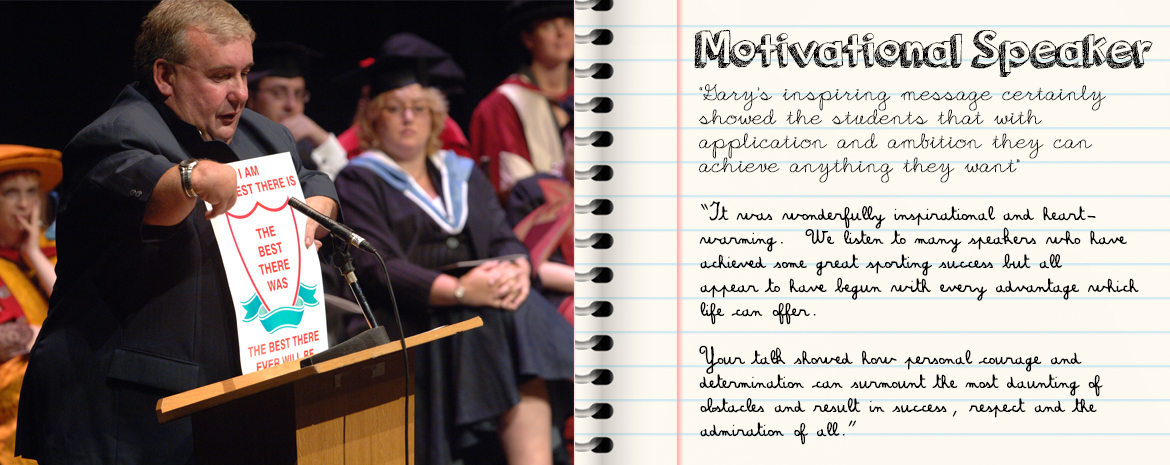 I AM
EST THERE IS
THE
BEST
THERE
WAS
THE BEST THERE
EVER WILL BE
Motivational Speaker
"Gary's inspiring message certainly
showed the students that with
application and ambition they can
achieve anything they want"
"It was wonderfully inspirational and heart-
warming. We listen to many speakers who have
achieved some great sporting success but all
appear to have begun with every advantage which
life can offer.
Your talk showed how personal courage and
determination can surmount the most daunting of
obstacles and result in success, respect and the
admiration of all."